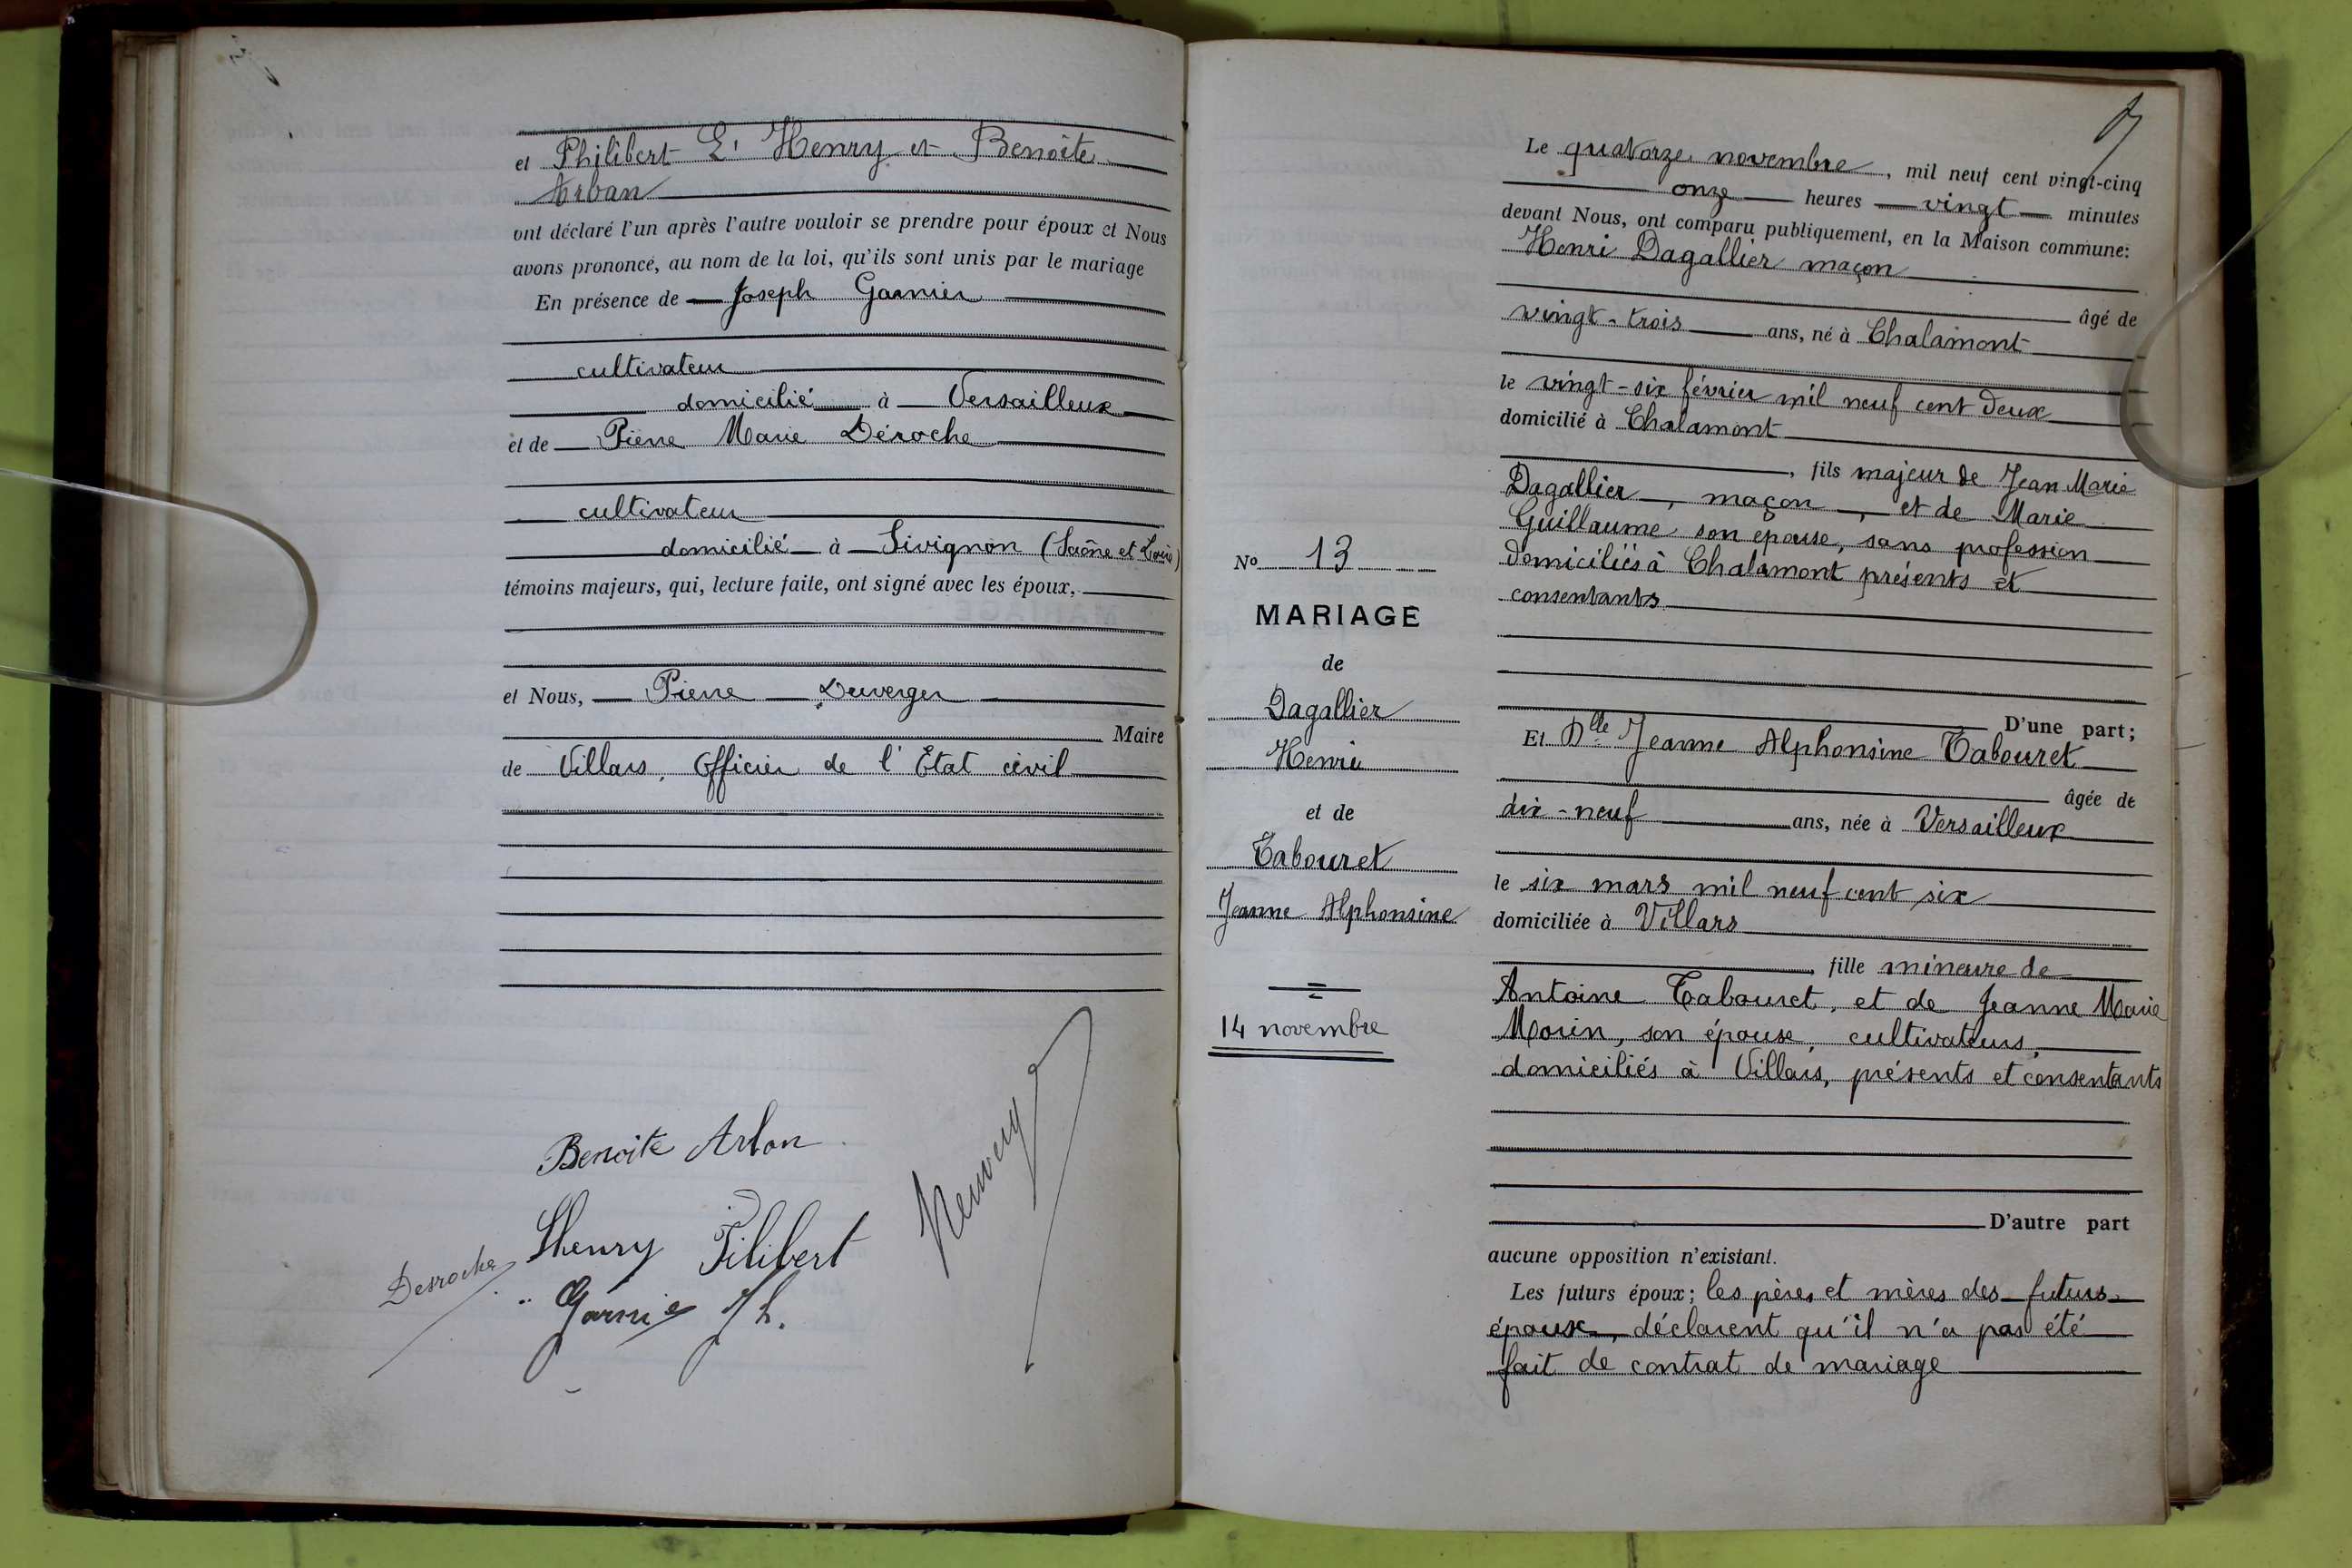 et Philibert L' Henry et Benoite
Arban
ont déclaré l'un après l'autre vouloir se prendre pour époux et Nous
avons prononcé, au nom de la loi, qu'ils sont unis par le mariage
En présence de Joseph Garnier
cultivateur
domicilié à Versailleux
et de Pierre Marie Déroche
cultivateur
domicilié à Sivignon (Saône et Loire)
témoins majeurs, qui, lecture faite, ont signé avec les époux,
et Nous, Pierre Duverger
Maire
de Villars, Officier de l'Etat civil
Benoite Arban
Lhenry Filibert
Desroche
Garnier Jh.
Le quatorze novembre, mil neuf cent vingt-cinq
onze heures vingt minutes
devant Nous, ont comparu publiquement, en la Maison commune:
Henri Dagallier maçon
âgé de
vingt-trois ans, né à Chalamont
le vingt-six février mil neuf cent deux
domicilié à Chalamont
, fils majeur de Jean Marie
Dagallier, maçon, et de Marie
Guillaume son épouse, sans profession
domiciliés à Chalamont présents et
consentants
D'une part;
Et Dlle Jeanne Alphonsine Tabouret
âgée de
dix-neuf ans, née à Versailleux
le six mars mil neuf cent six
domiciliée à Villars
fille mineure de
Antoine Tabouret, et de Jeanne Marie
Morin, son épouse, cultivateurs,
domiciliés à Villars, présents et consentants
D'autre part
aucune opposition n'existant.
Les futurs époux; les pères et mères des futurs
époux, déclarent qu'il n'a pas été
fait de contrat de mariage
No 13
MARIAGE
de
Dagallier
Henri
et de
Tabouret
Jeanne Alphonsine
14 novembre